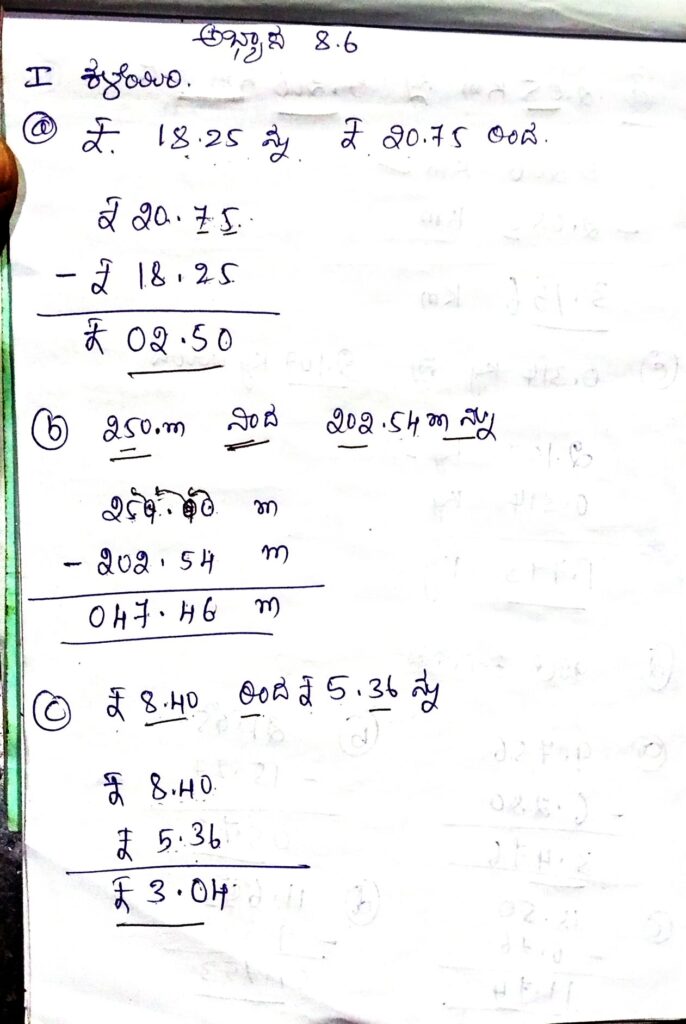 ಅಭ್ಯಾಸ 8.6
I ಕಳೆಯಿರಿ.
ⓐ ₹. 18.25 ನ್ನು ₹ 20.75 ರಿಂದ.
₹ 20.75
- ₹ 18.25
₹ 02.50
ⓑ 250.m ನಿಂದ 202.54 m ನ್ನು
250.00 m
- 202.54 m
047.46 m
ⓒ ₹ 8.40 ರಿಂದ ₹ 5.36 ನ್ನು
₹ 8.40
₹ 5.36
₹ 3.04